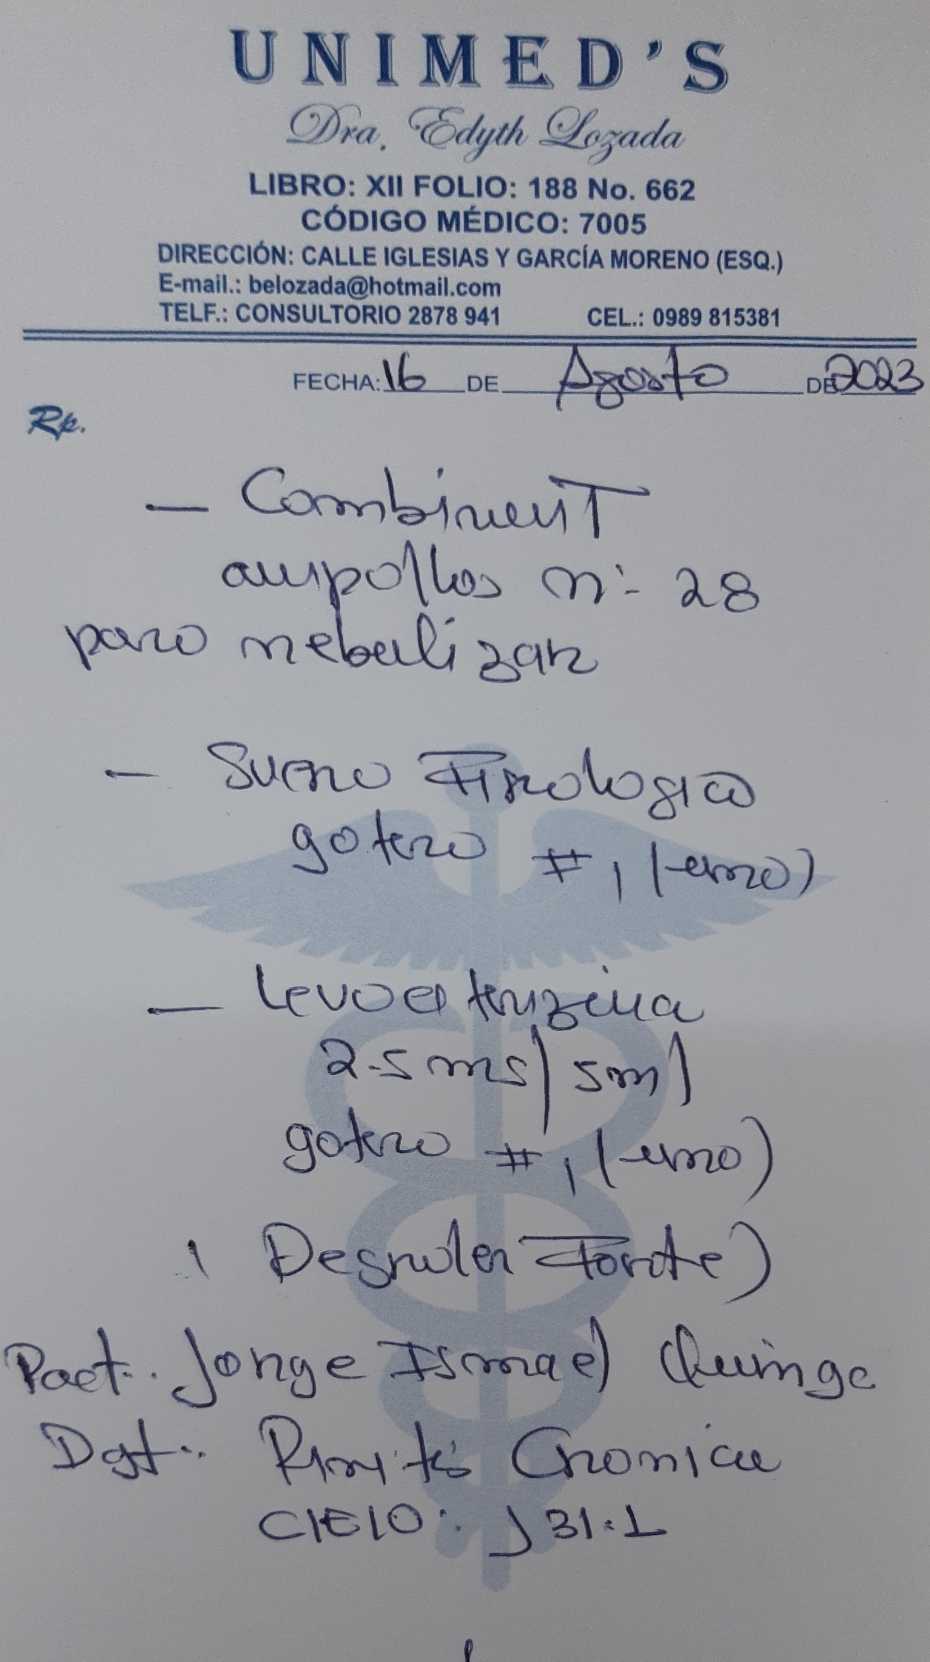 UNIMED'S
Dra. Edyth Lozada
LIBRO: XII FOLIO: 188 No. 662
CÓDIGO MÉDICO: 7005
DIRECCIÓN: CALLE IGLESIAS Y GARCÍA MORENO (ESQ.)
E-mail.: belozada@hotmail.com
TELF.: CONSULTORIO 2878 941 CEL.: 0989 815381
FECHA: 16 DE Agosto DE 2023
Rp.
- Combivent
ampollas n:- 28
para nebulizar
- Suero Fisiologico
gotero # 1 (uno)
- Levocetirizina
2.5 mg/5ml
gotero # 1 (uno)
Forte)
Pact.. Jorge Ismael Quinga
Dgt.. Rinitis Cronica
CIE10: J31.1